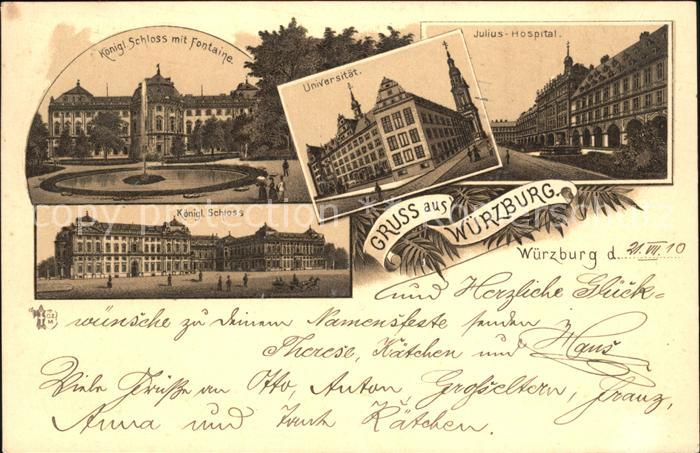 Königl. Schloss mit Fontaine.
Universität.
Julius-Hospital.
Königl. Schloss
GRUSS aus WÜRZBURG.
Würzburg d. 21. VII. 10
und Herzliche Glück=
wünsche zu deinem Namensfeste senden
Therese, Kätchen und Hans
Viele Grüße an Otto, Anton, Großeltern, Franz,
Anna und Tante Kätchen.